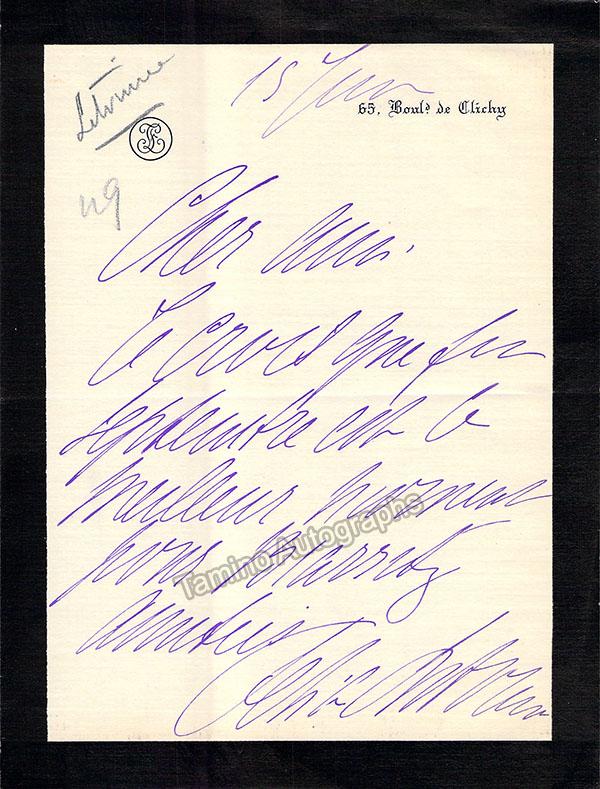 Litvinne
15 Juin
65, Boul.ᵈ de Clichy
Cher ami.
Je crois que fin
septembre est le
meilleur moment
pour Biarritz
amitiés
Félia Litvinne
Tamino Autographs